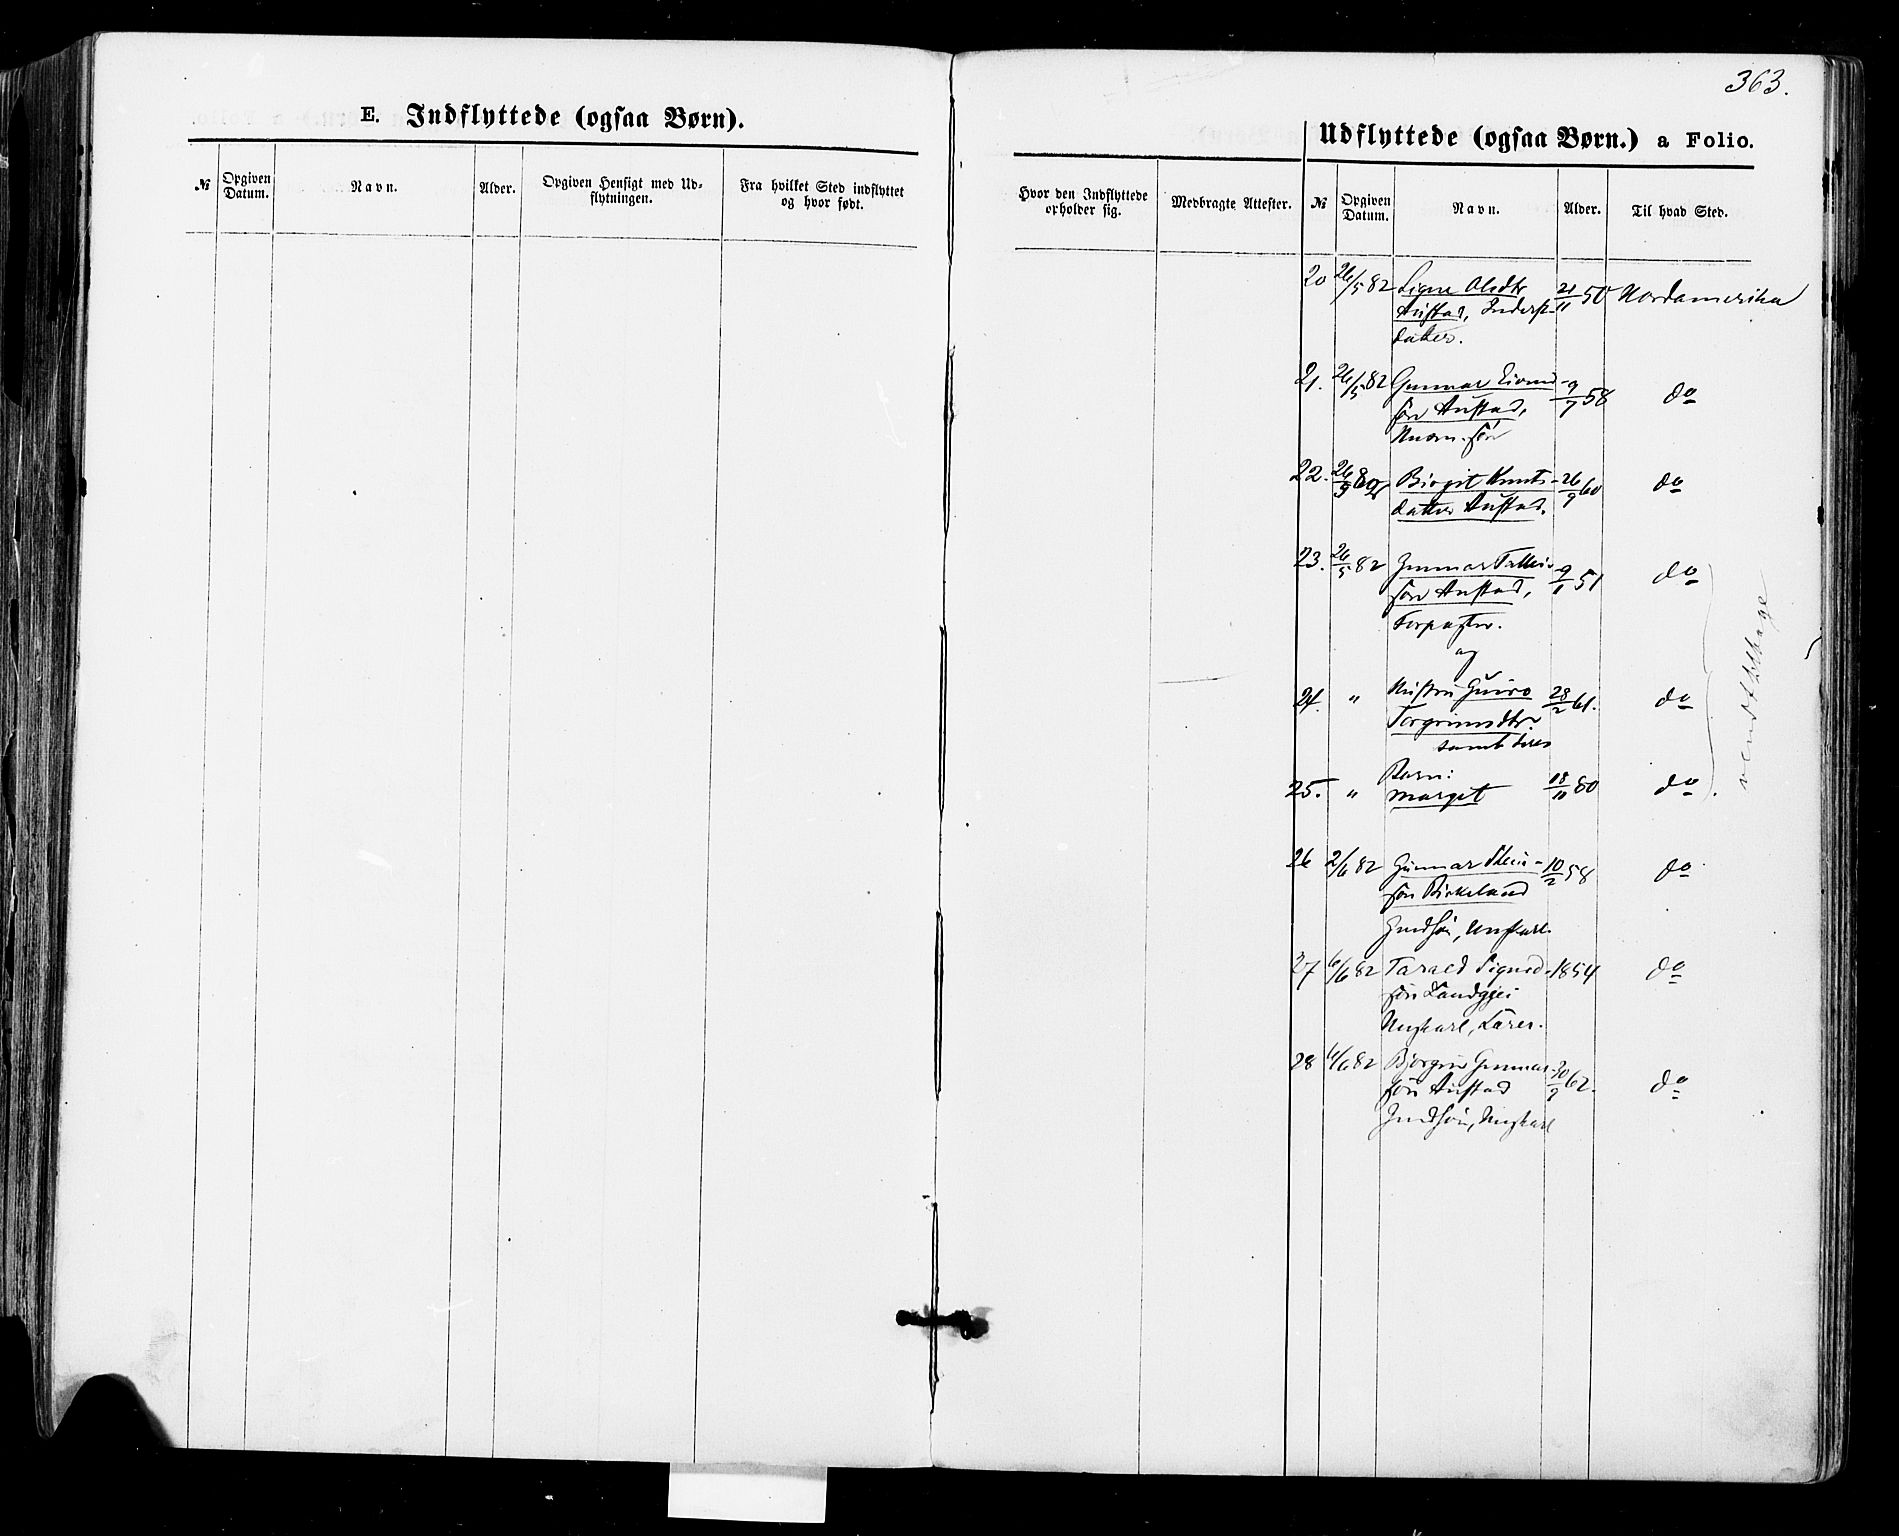 363.
E. Indflyttede (ogsaa Børn).
№ Opgiven Datum. Navn. Alder. Opgiven Hensigt med Udflytningen. Fra hvilket Sted indflyttet og hvor født.
Hvor den Indflyttede opholder sig. Medbragte Attester.
Udflyttede (ogsaa Børn.) a Folio.
№ Opgiven Datum. Navn. Alder. Til hvad Sted.
20 26/5 82 Signe Olsdtr 21/11 50 Nordamerika
Austad,
datter.
21. 26/5 82 Gunnar Eivind- 9/7 58 do
søn Austad,
22. 26/5 82 Birgit Knuts- 26/9 60 do
datter Austad.
23. 26/5 82 Gunnar 9/1 51 do
søn Austad,
Forpagter.
og
24. " Hustru Guro 28/2 61. do
Torgrimsdtr.
samt deres
25. " Barn:
Margit 18/11 80 do
vendt tilbage
26 2/6 82 Gunnar Stein- 10/2 58 do
søn Birkeland
Grdsøn, Ungkarl.
27 6/6 82 Tarald Sigurd- 1854 do
søn Landgjei
Ungkarl, Lærer.
28 6/6 82 Bjorgru Gunnar- 30/9 62. do
søn Austad
Grdsøn, Ungkarl